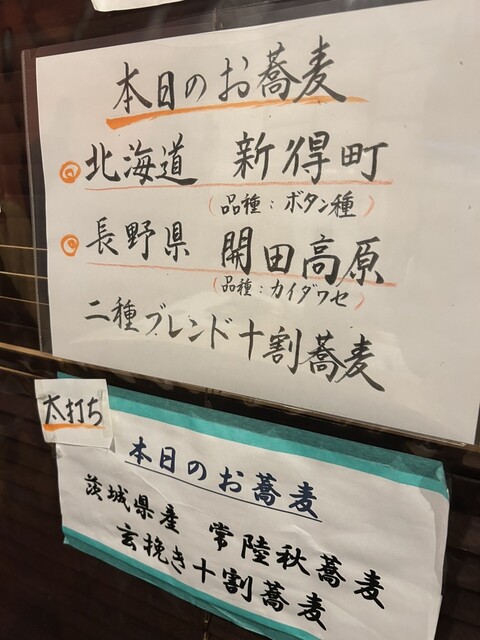 本日のお蕎麦
北海道 新得町
(品種：ボタン種)
長野県 開田高原
(品種：カイダワセ)
二種ブレンド十割蕎麦
太打ち
本日のお蕎麦
茨城県産 常陸秋蕎麦
玄挽き十割蕎麦